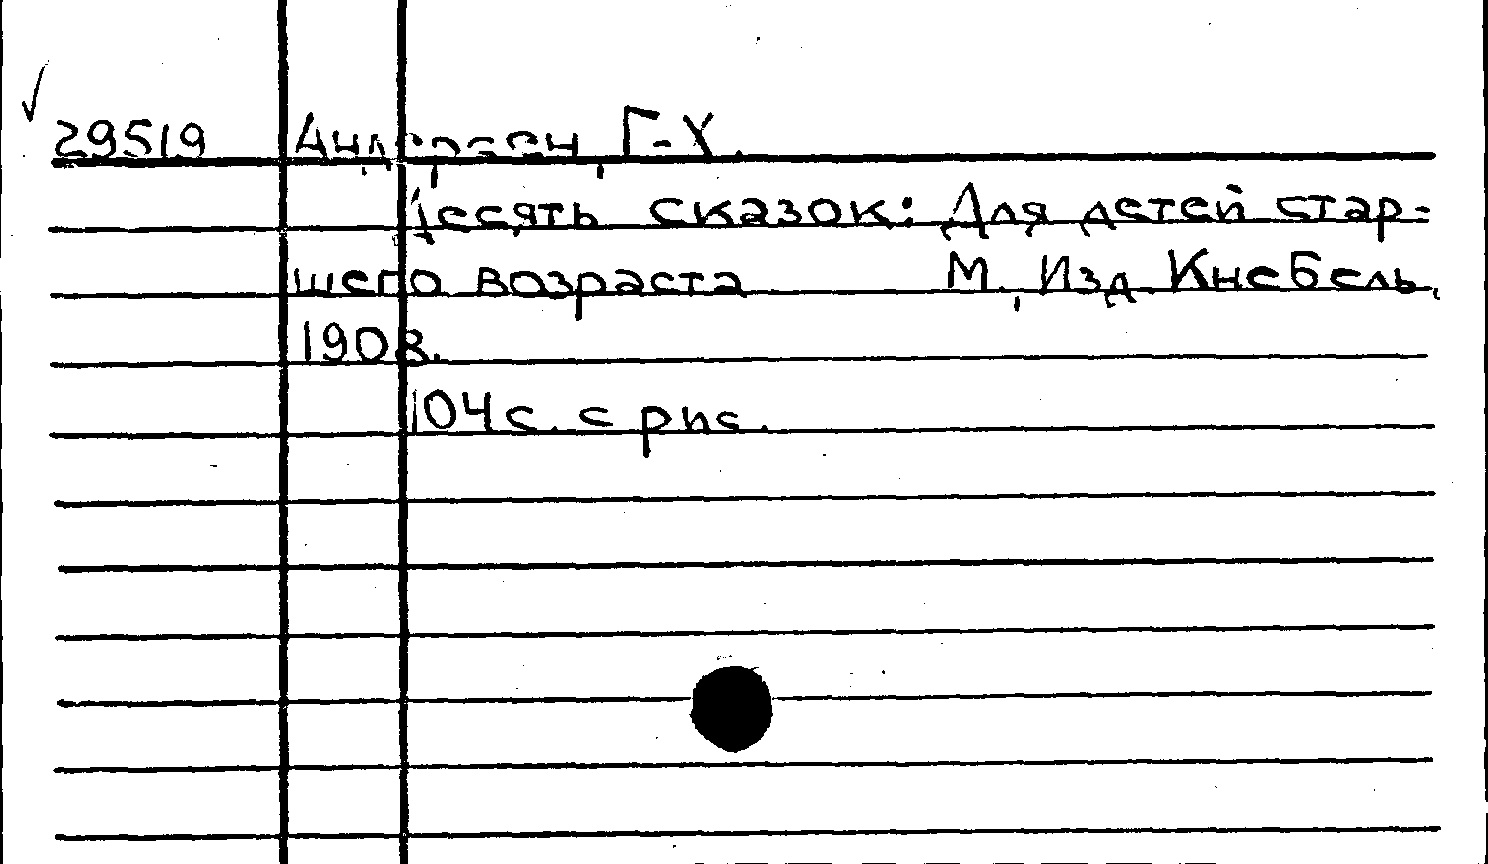 29519 Андерсен, Г-Х.
Десять сказок: Для детей стар-
шего возраста М., Изд. Кнебель,
1908.
104 с. с рис.